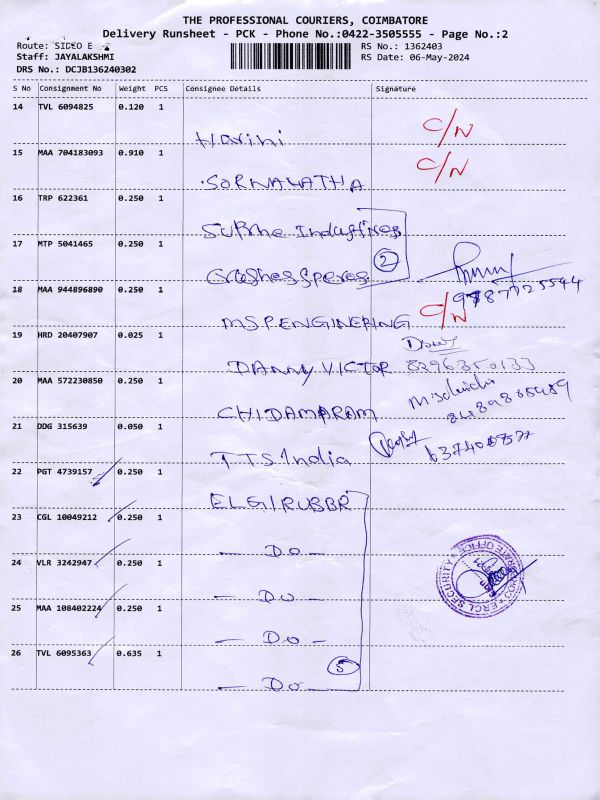 THE PROFESSIONAL COURIERS, COIMBATORE
Delivery Runsheet - PCK - Phone No.:0422-3505555 - Page No.:2
Route: SIDCO E
RS No.: 1362403
Staff: JAYALAKSHMI
RS Date: 06-May-2024
DRS No.: DCJB136240302
S No Consignment No Weight PCS Consignee Details Signature
14 TVL 6094825 0.120 1
Harini C/N
15 MAA 704183093 0.910 1
SORNALATHA C/N
16 TRP 622361 0.250 1
Industries
17 MTP 5041465 0.250 1
2
18 MAA 944896890 0.250 1
9787725544
MSP ENGINERING C/N
19 HRD 20407907 0.025 1
DANNY VICTOR 8296350133
20 MAA 572230850 0.250 1
CHIDAMPARAM
21 DDG 315639 0.050 1
TTS India
22 PGT 4739157 0.250 1
ELGI RUBBR
23 CGL 10049212 0.250 1
- DO -
24 VLR 3242947 0.250 1
- DO -
25 MAA 108402224 0.250 1
- DO -
26 TVL 6095363 0.635 1
5
- DO -